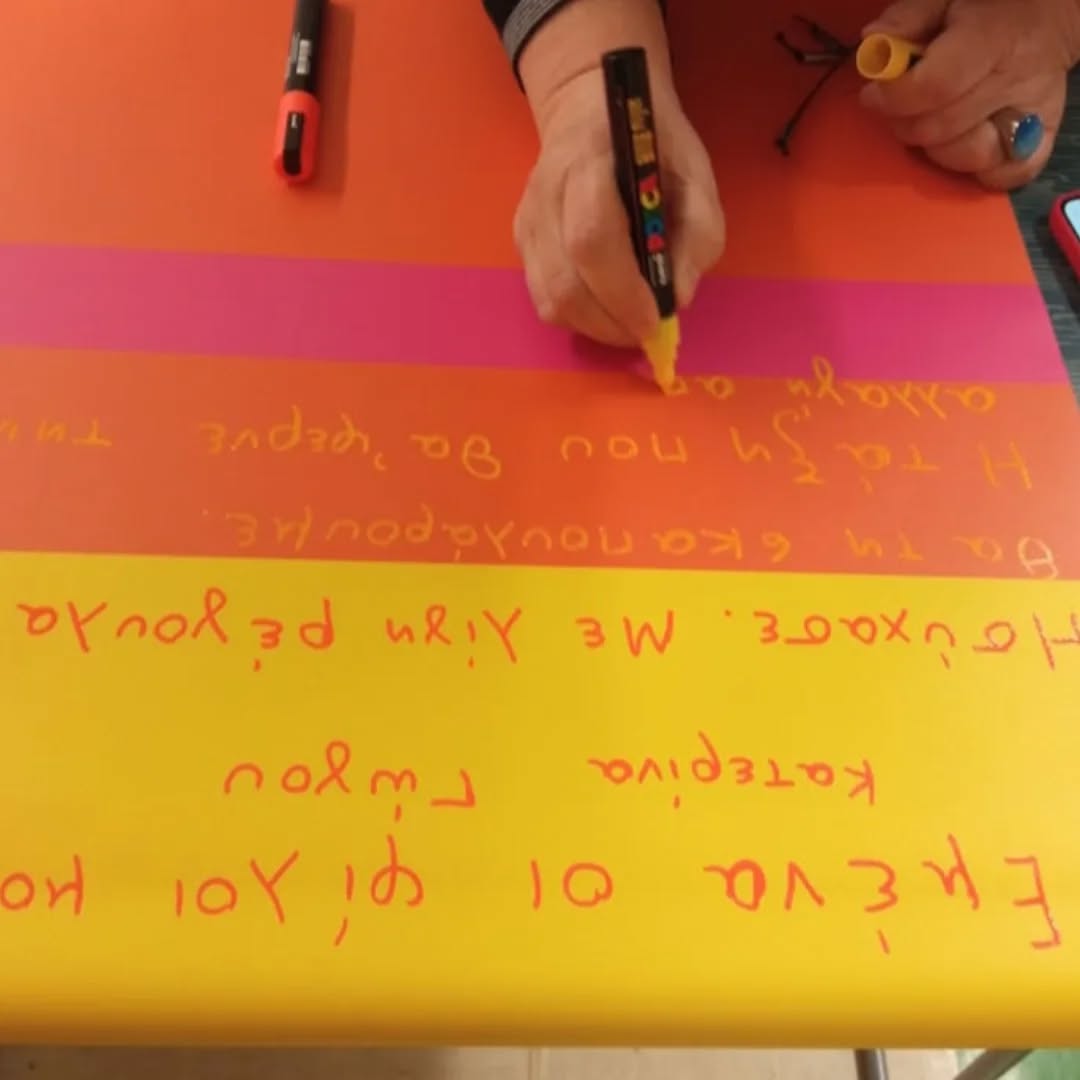 Εμένα οι φίλοι μο
Κατερίνα Γώγου
Ησύχασε. Με λίγη ρέγουλα
θα τη σκαπουλάρουμε.
Η τάξη που θα 'φερνε
αλλαγή